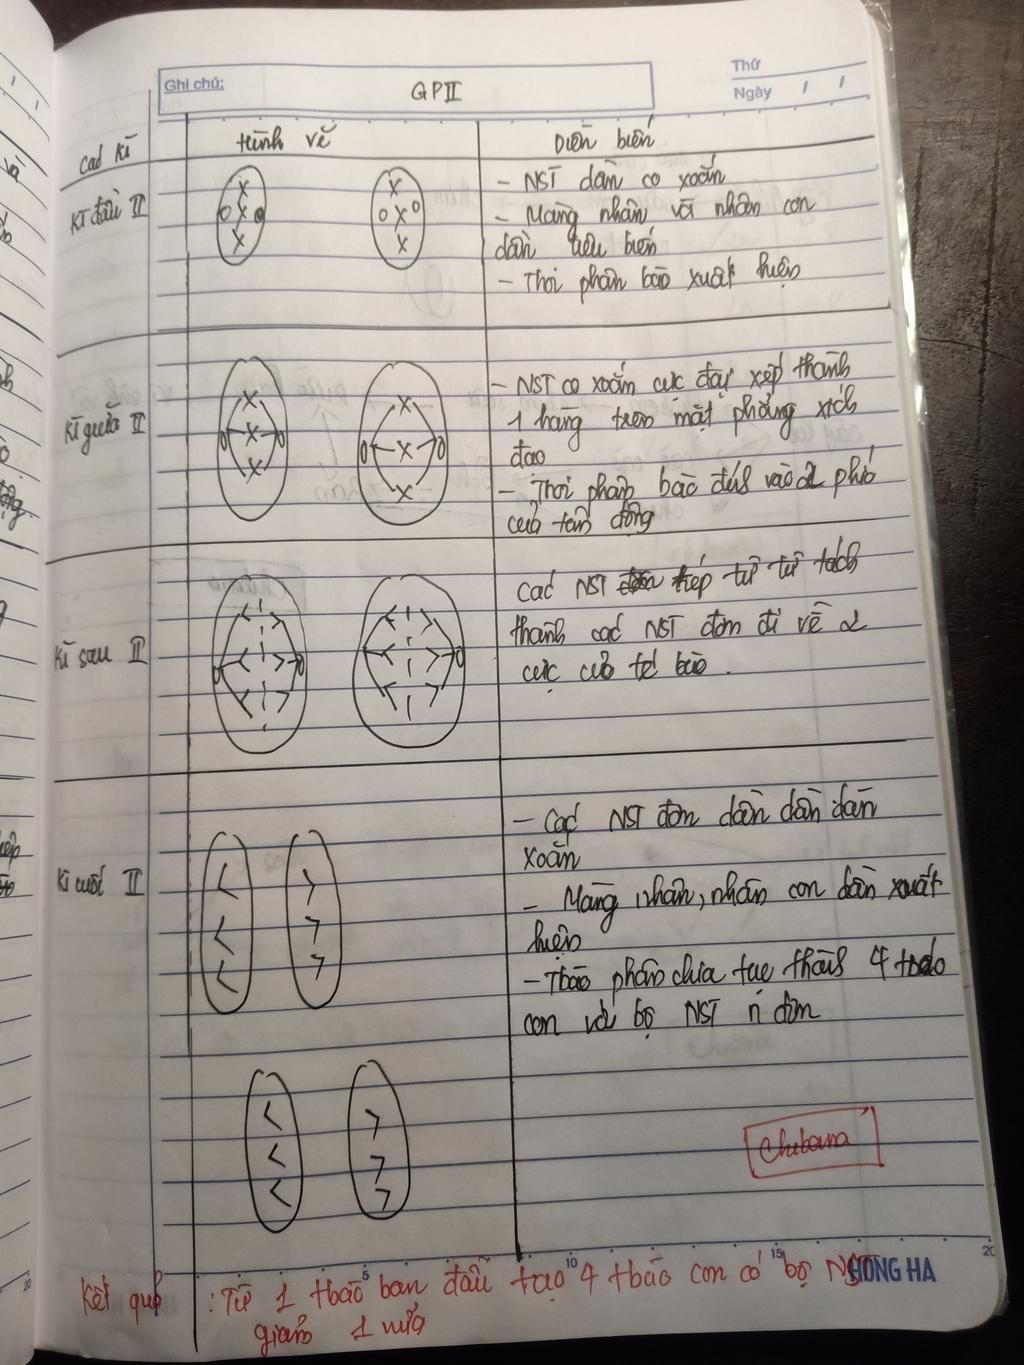 Ghi chú:
GP II
Thứ
Ngày / /
Các kì
Hình vẽ
Diễn biến
Kì đầu II
- NST dần co xoắn
- Màng nhân và nhân con
dần tiêu biến
- Thoi phân bào xuất hiện
Kì giữa II
- NST co xoắn cực đại xếp thành
1 hàng trên mặt phẳng xích
đạo
- Thoi phân bào đính vào 2 phía
của tâm động
Kì sau II
Các NST kép từ từ tách
thành các NST đơn đi về 2
cực của tế bào.
Kì cuối II
- Các NST đơn dần dần dãn
xoắn
- Màng nhân, nhân con dần xuất
hiện
- Tbào phân chia tạo thành 4 tbào
con với bộ NST n đơn
Chibana
5 10 15 20
HONG HA
Kết quả : Từ 1 tbào ban đầu tạo 4 tbào con có bộ NST
giảm 1 nửa